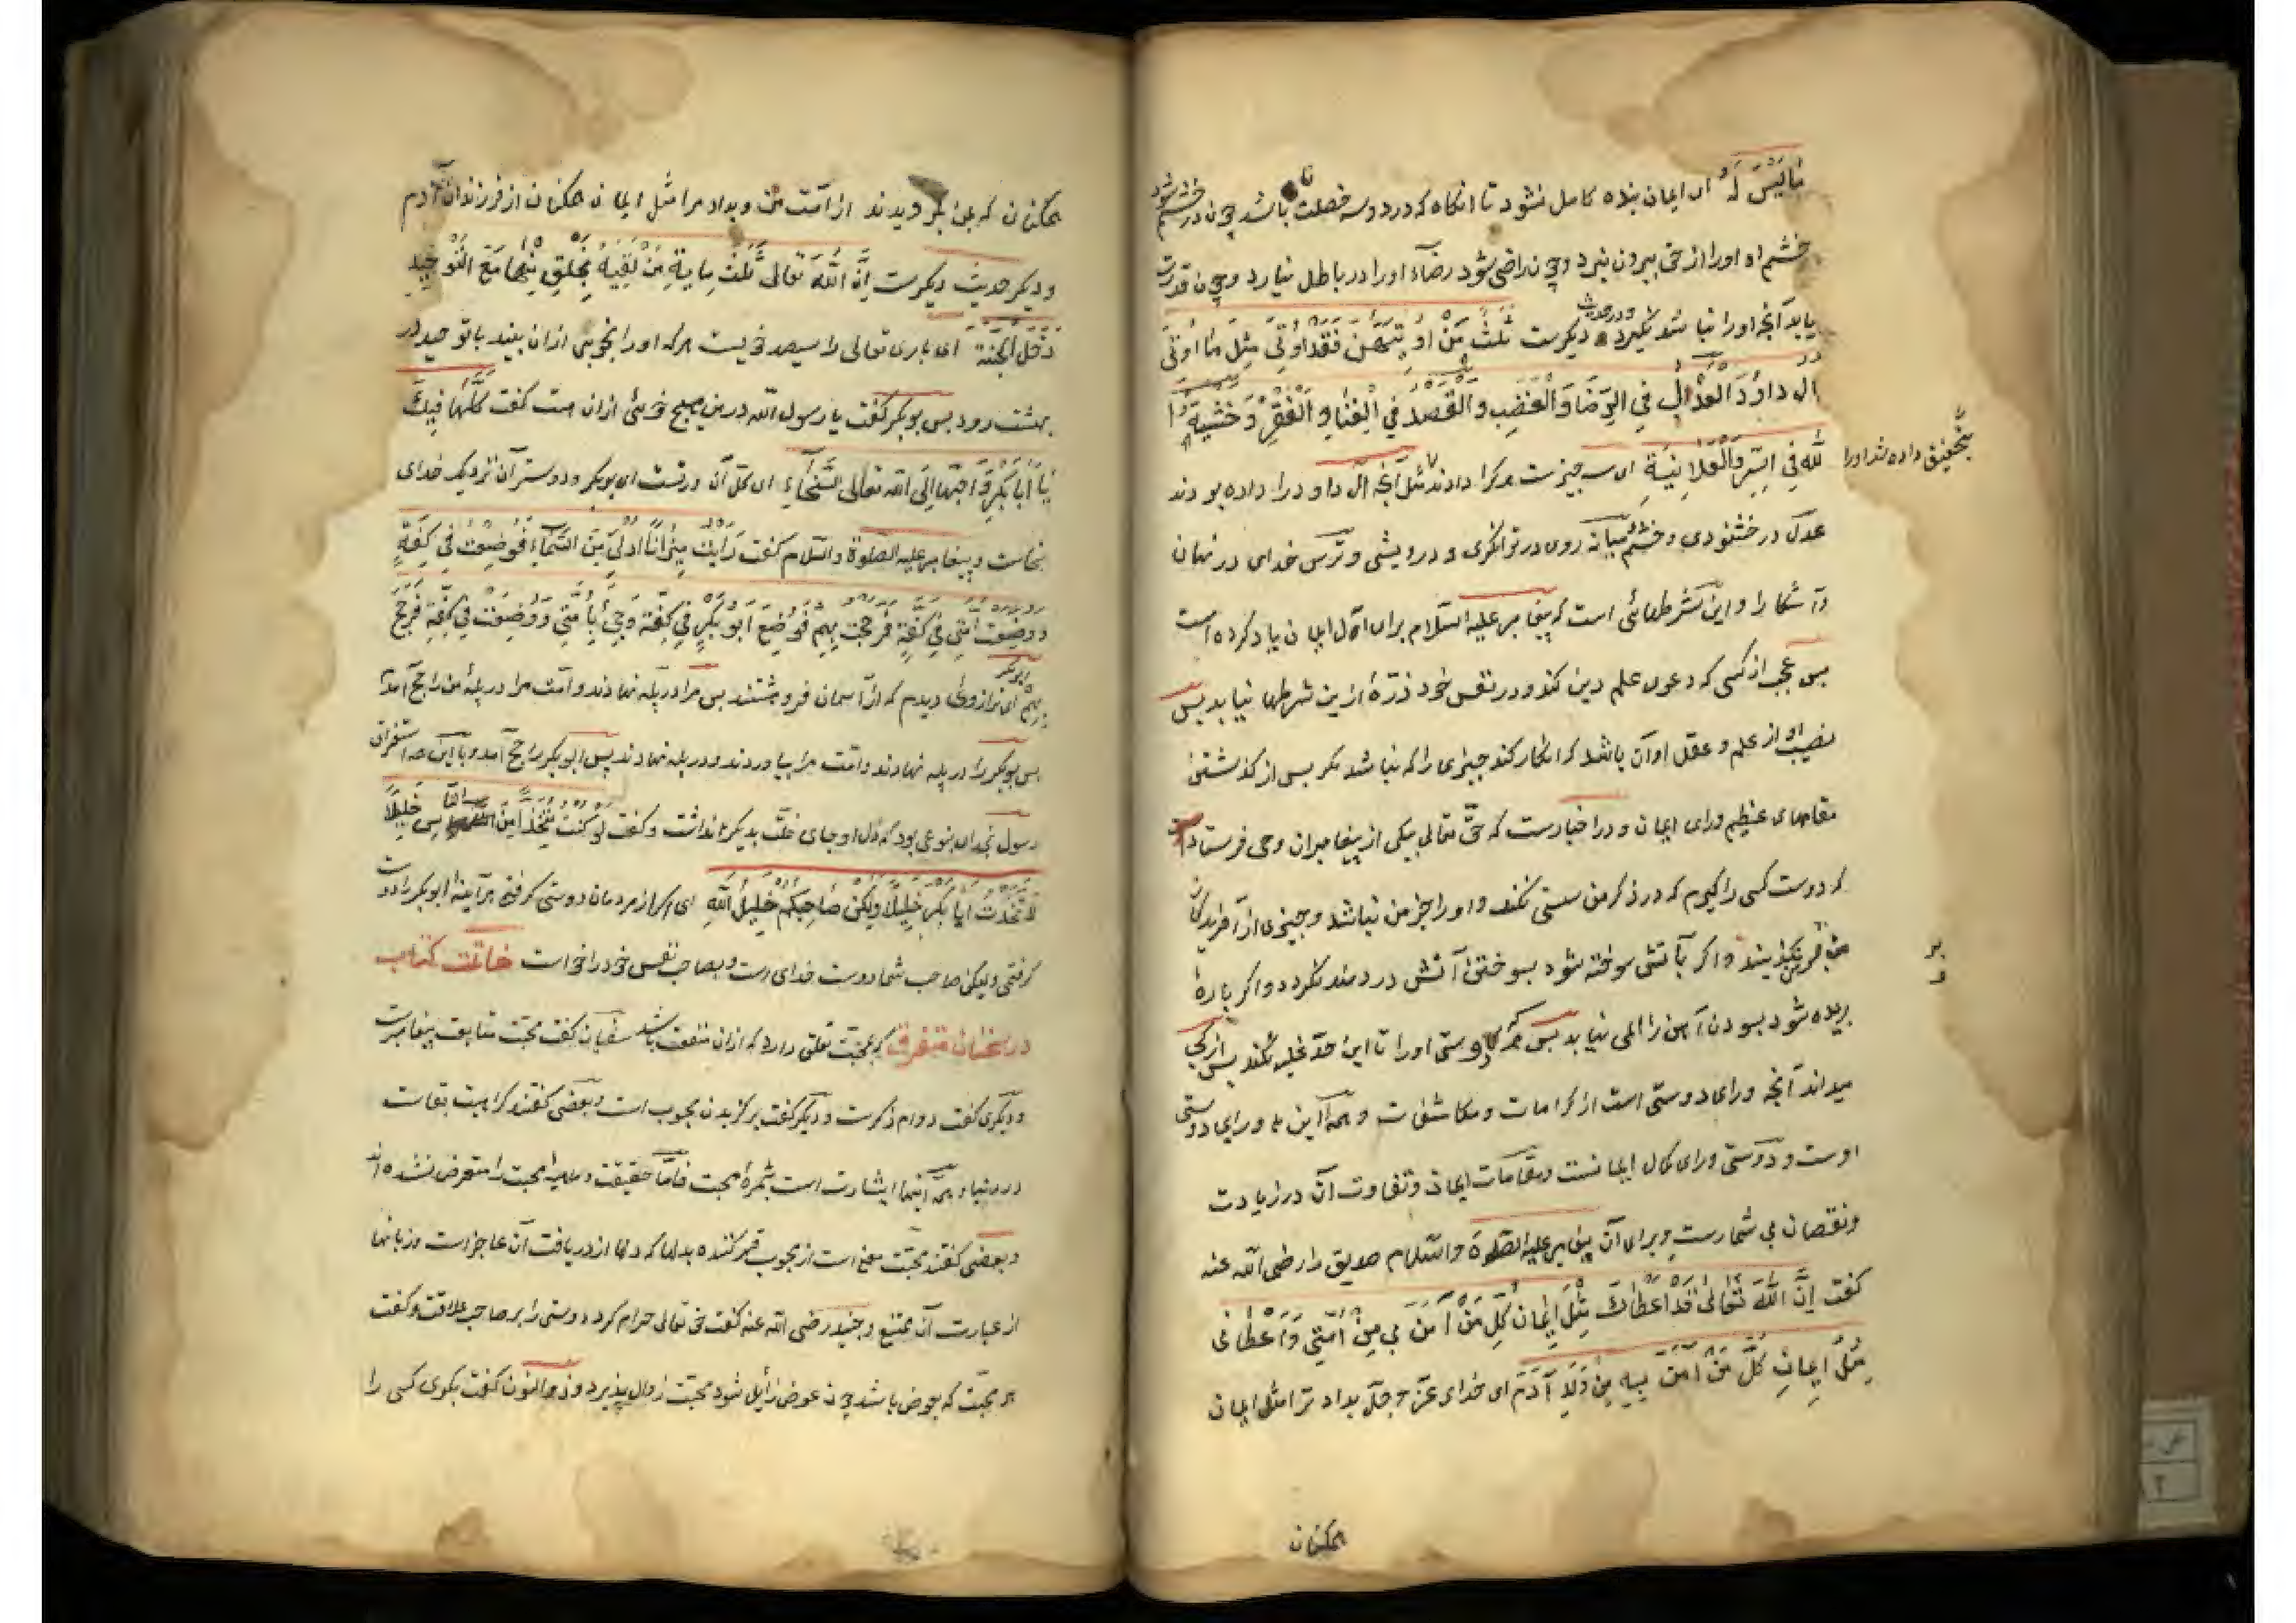 مالیس له ای ایمان بنده کامل نشود تا انکاه که درو سه خصلت باشد چون در خشم شود
خشم او اورا از حق بیرون نبرد و چون راضی شود رضاء اورا در باطل نیارد و چون قدرت
یابد آنچه اورا نباشد نکیرد و در حدیث دیکرست ثلث من اوتیهن فقد اوتی مثل ما اوتی
ال داود العدل فی الرضا والغضب والقصد فی الغنا والفقر وخشیة
لله فی السر والعلانیة ای سه چیزست هرکرا دادند مثل آنچه آل داود را داده بودند
بتحقیق داده شد اورا
عدل در خشنودی و خشم میانه روی در توانکری و درویشی و ترس خدای در نهان
و آشکارا و این شرطهائی است که پیغامبر علیه السلام برای اهل ایمان یاد کرده است
پس عجب از کسی که دعوی علم دین کند و در نفس خود ذرهٔ ازین شرطها نیابد پس
نصیب او از علم و عقل او آن باشد که انکار کند چیزی را که نباشد مکر پس از کذشتن
مقامهای عظیم ورای ایمان و در اخبارست که حق تعالی بیکی از پیغامبران وحی فرستاد
که دوست کسی را کیرم که در ذکر من سستی نکند و اورا جز من نباشد و چیزی از آفریدکان
من بر من نکزیند و اکر بآتش سوخته شود بسوختن آتش دردمند نکردد و اکر پاره
بریده شود بسودن آهن را المی نیابد پس هر که دوستی اورا تا این حد غلبه نکند پس از کجا
میداند آنچه ورای دوستی است از کرامات و مکاشفات و همه این ها ورای دوستی
اوست و دوستی ورای کمال ایمانست و مقامات ایمان و تفاوت آن در زیادت
و نقصان بی شمارست و برای آن پیغامبر علیه الصلوة والسلام صدیق را رضی الله عنه
کفت ان الله تعالی قد اعطاك مثل ایمان کل من آمن بی من امتی واعطانی
مثل ایمان کل من آمن به من ولد آدم ای خدای عز و جل بداد ترا مثل ایمان
همکنان
همکنان که بمن بکرویدند از امت من و بداد مرا مثل ایمان همکنان از فرزندان آدم
و دیکر حدیث دیکرست ان الله تعالی ثلث مایة من لقیه بخلق منها مع التوحید
دخل الجنة ای باری تعالی را سیصد خویست هرکه اورا بخویی ازان بیند با توحید در
بهشت رود پس بوبکر کفت یا رسول الله در من هیچ خوئی ازان هست کفت کلها فیك
یا ابا بکر واحبها الی الله تعالی السخاء ای کل آن در تست ای بوبکر و دوسترآن نزدیك خدای
سخاست و پیغامبر علیه الصلوة والسلام کفت رایت میزانا ادلی من السماء فوضعت فی کفة
ووضعت امتی فی کفة فرجحت بهم فوضع ابو بکر فی کفة وجئ بامتی ووضعت فی کفة فرجح
بهم ای ترازوئی دیدم که از آسمان فروهشتند پس مرا در پله نهادند و امت مرا در پله من راجح آمدم
پس بوبکر را در پله نهادند و امت مرا بیاوردند و در پله نهادند پس ابوبکر راجح آمد و با این همه استغراق
رسول بخدای بنوعی بود که دل او جای خلت بدیکر نداشت و کفت لو کنت متخذا من الناس خلیلا
لاتخذت ابا بکر خلیلا ولکن صاحبکم خلیل الله ای اکر از مردمان دوستی کرفتی هرآینه ابوبکر را دوست
کرفتی ولیکن صاحب شما دوست خدای است و بصاحب نفس خود را خواست خاتمت کتاب
در سخنان متفرق که بمحبت تعلق دارد که ازان منفعت باشد سفیان کفت محبت متابعت پیغامبرست
و دیکری کفت دوام ذکرست و دیکر کفت برکزیدن محبوب است و بعضی کفتند کراهیت بقاست
در دنیا و همه اینها اشارت است بثمره محبت فاما حقیقت محبت را متعرض نشده اند
و بعضی کفتند محبت معنی است از محبوب قهر کننده بدلها که دلها از دریافت آن عاجز است و زبانها
از عبارت آن ممتنع و جنید رضی الله عنه کفت حق تعالی حرام کرد دوستی را بر صاحب علاقت و کفت
هر محبت که بعوض باشد چون عوض زائل شود محبت زوال پذیرد و ذوالنون کفت بکوی کسی را